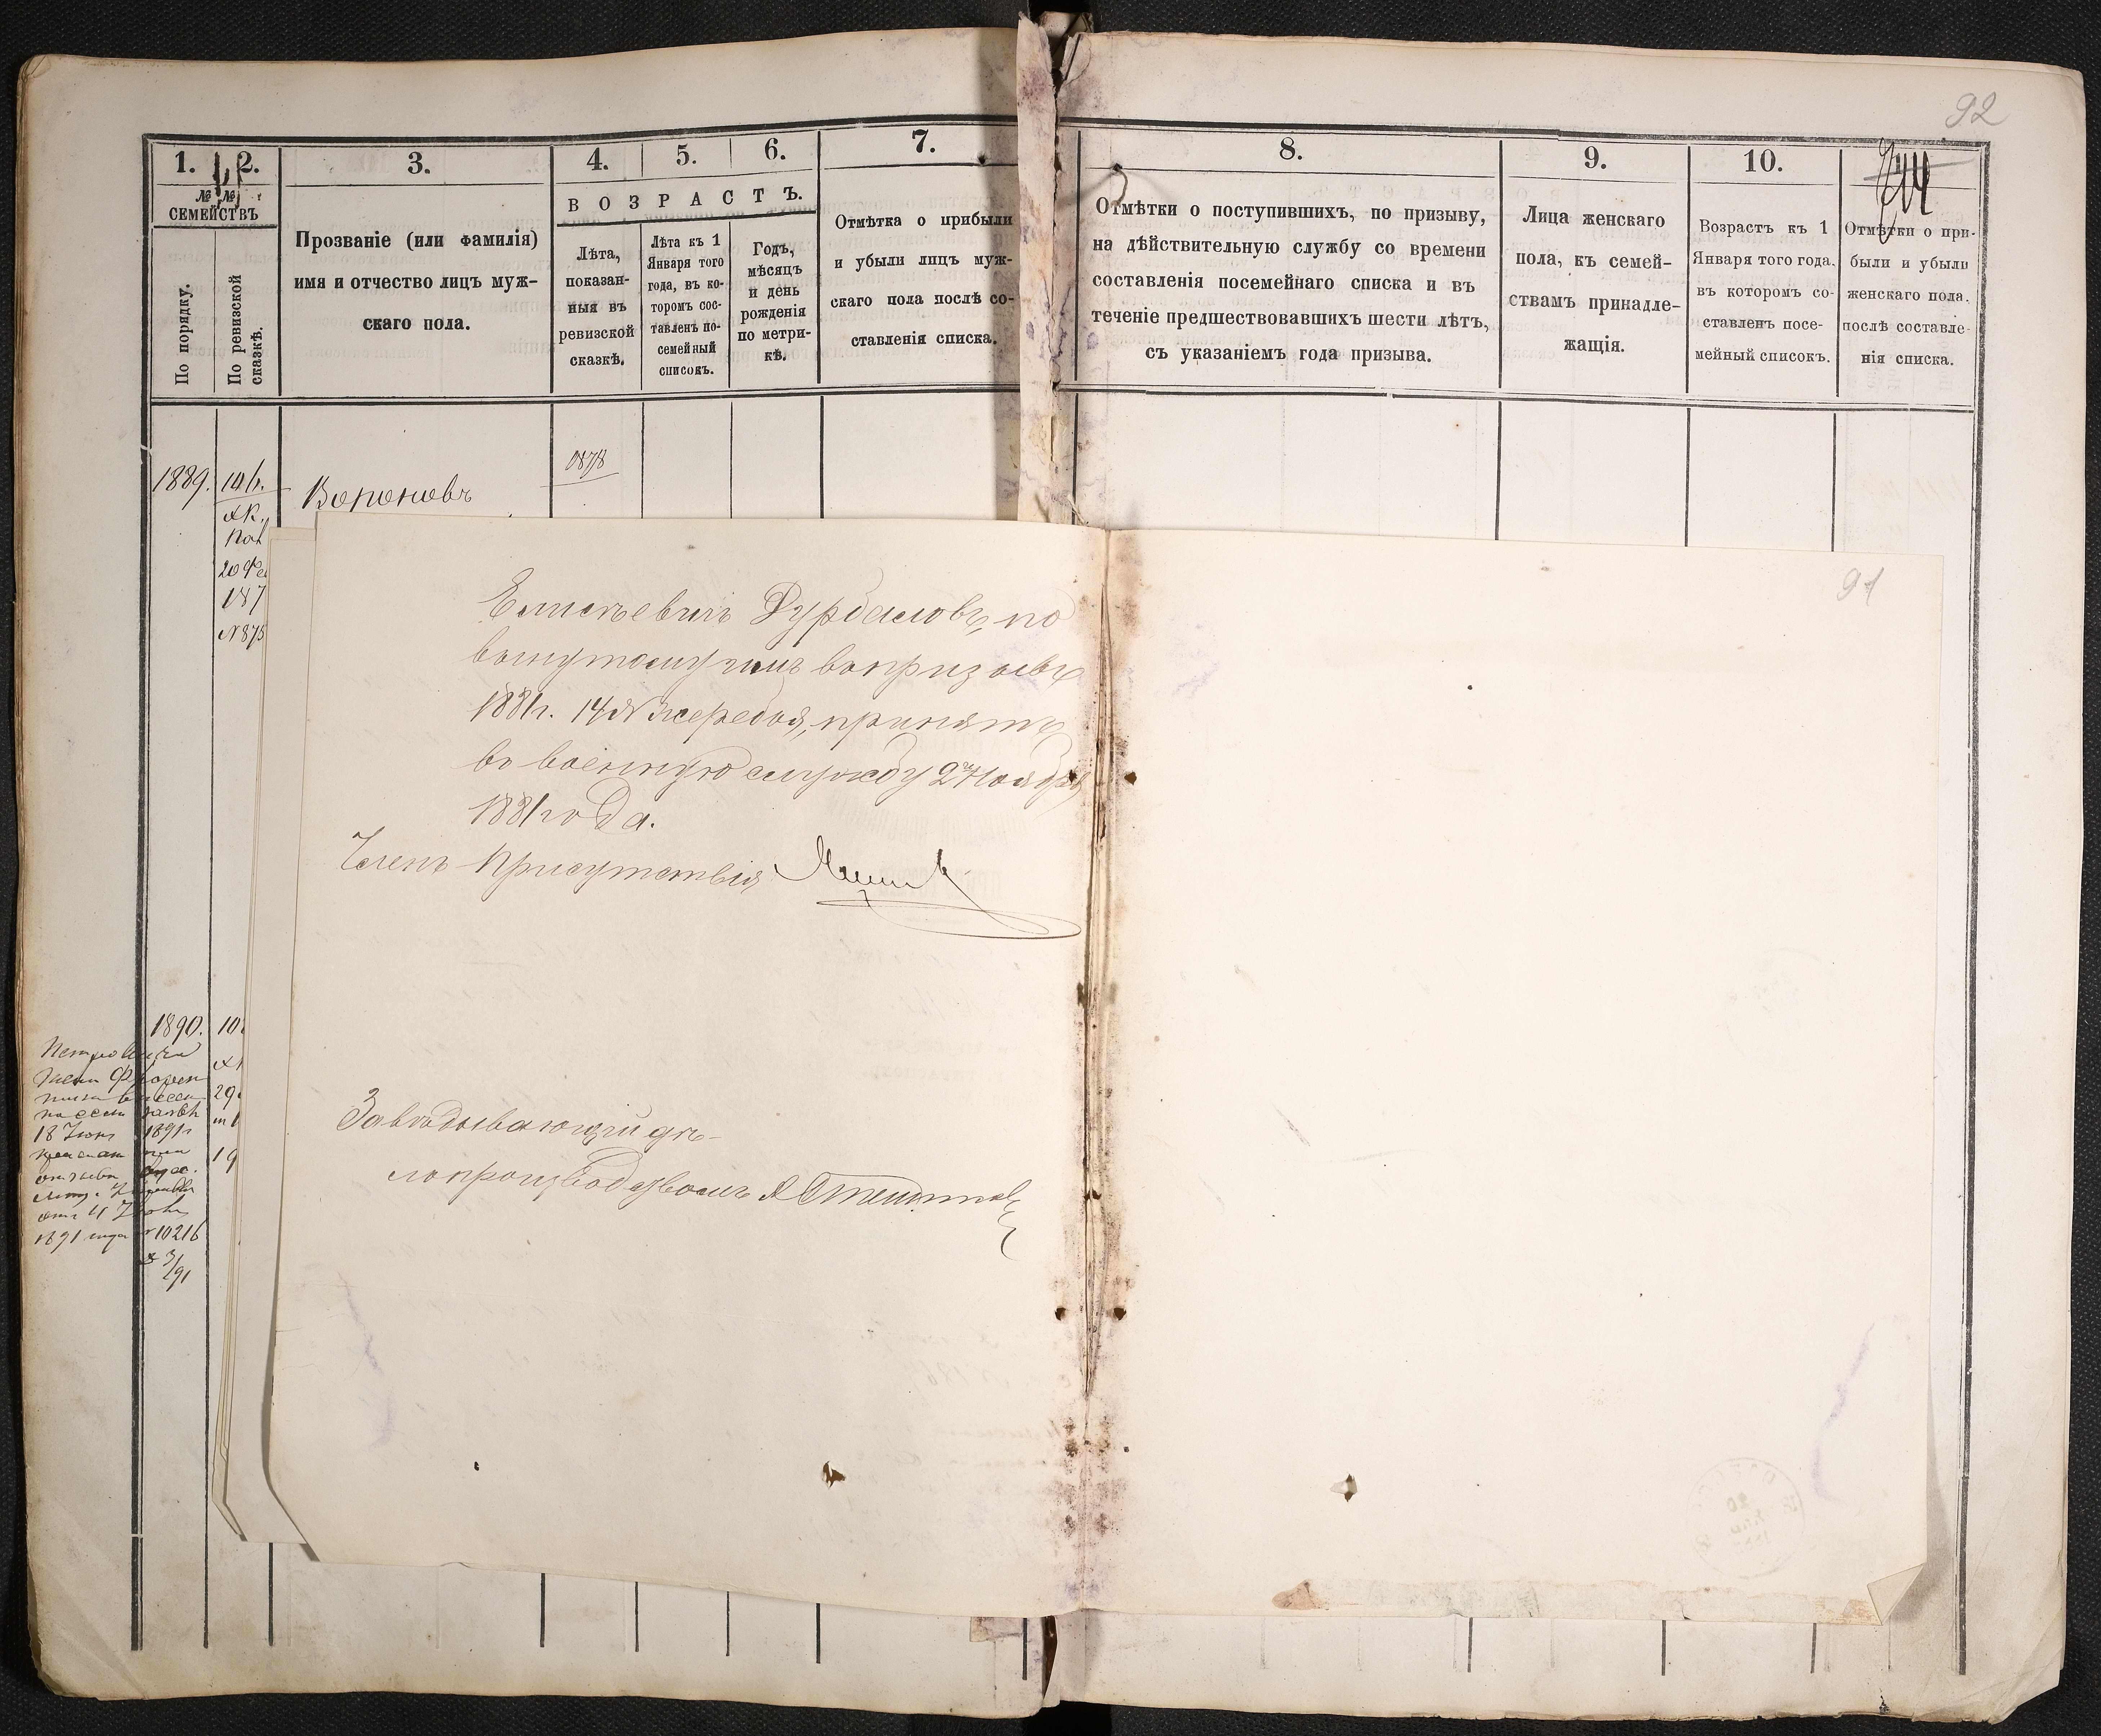 92
1. 2. 3. 4. 5. 6. 7. 8. 9. 10.
№ № СЕМЕЙСТВЪ
По порядку.
По ревизской сказкѣ.
Прозваніе (или фамилія)
имя и отчество лицъ муж-
скаго пола.
ВОЗРАСТЪ.
Лѣта,
показан-
ныя въ
ревизской
сказкѣ.
Лѣта къ 1
Января того
года, въ ко-
торомъ сос-
тавленъ по-
семейный
списокъ.
Годъ,
мѣсяцъ
и день
рожденія
по метри-
кѣ.
Отмѣтка о прибыли
и убыли лицъ муж-
скаго пола послѣ со-
ставленія списка.
Отмѣтки о поступившихъ, по призыву,
на дѣйствительную службу со времени
составленія посемейнаго списка и въ
теченіе предшествовавшихъ шести лѣтъ,
съ указаніемъ года призыва.
Лица женскаго
пола, къ семей-
ствамъ принадле-
жащія.
Возрастъ къ 1
Января того года,
въ которомъ со-
ставленъ посе-
мейный списокъ.
Отмѣтки о при-
были и убыли
женскаго пола,
послѣ составле-
нія списка.
1889. 146.
Вороновъ
1878
20 Фе
187
№ 875
91
Елисѣевичъ Дурбаловъ, по
вынутому имъ въ призывъ
1881 г. 14 № жеребья, принятъ
въ военную службу 2 Ноября
1881 года.
Членъ Присутствія
Завѣдывающій дѣ-
лопроизводствомъ
1890. 10
29
18 1891
19
1891 года № 10216
3/91